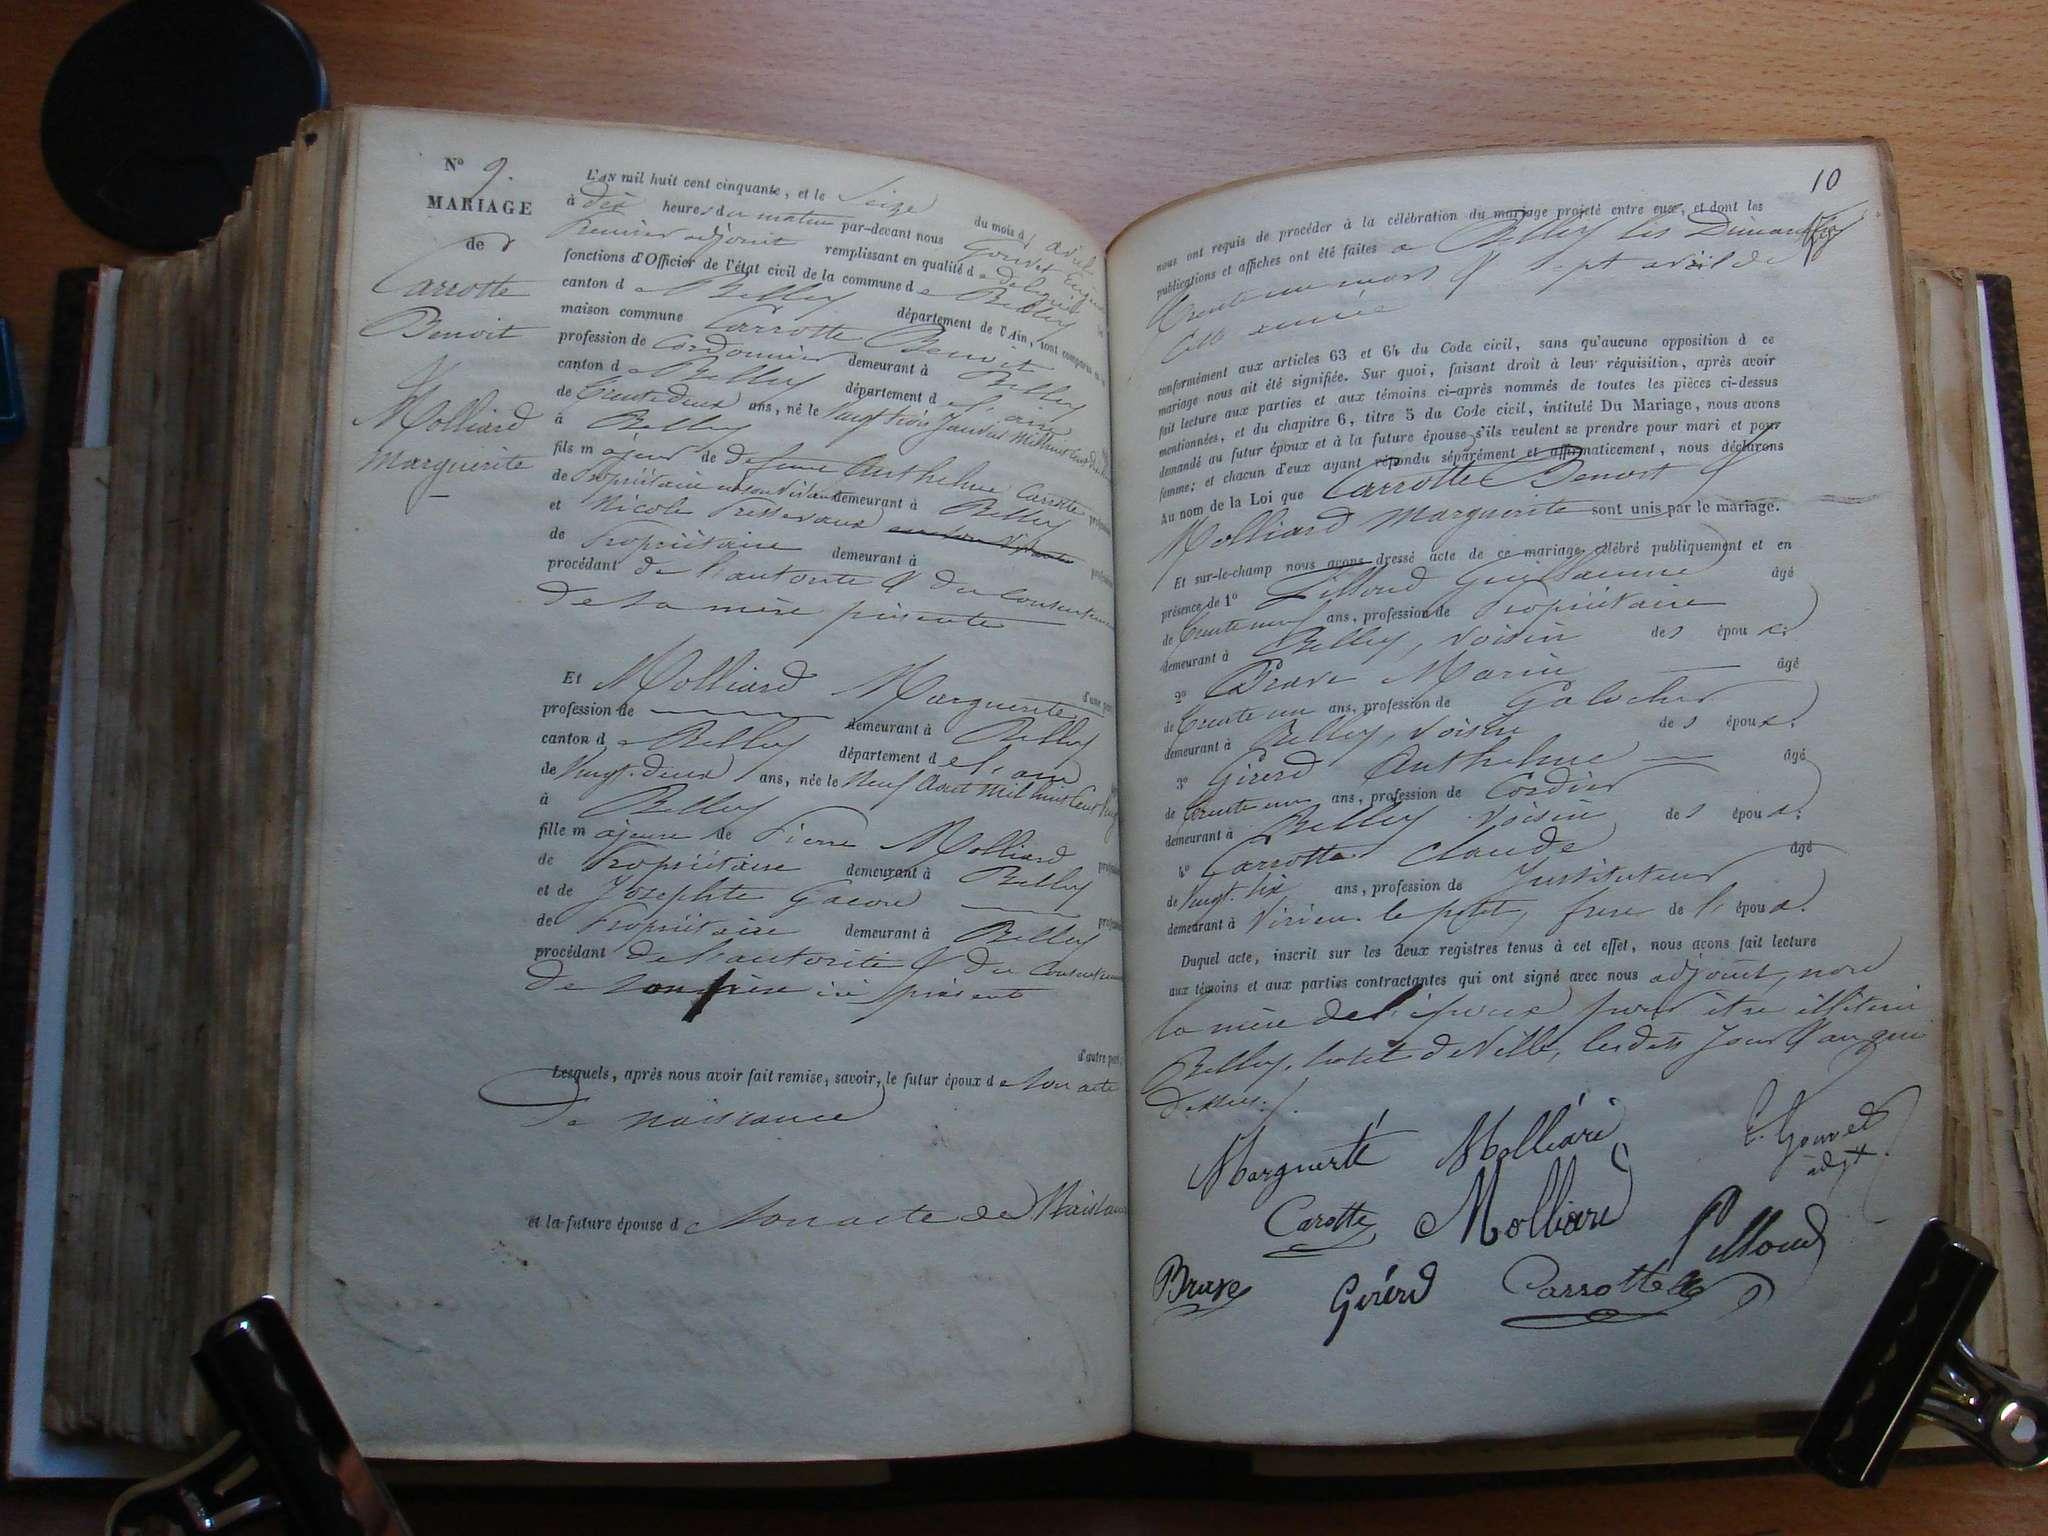 N° 9.
MARIAGE
de
Carrotte
Benoit
&
Molliard
Marguerite
L'AN mil huit cent cinquante, et le Seize du mois d'avril
à dix heures du matin par-devant nous Gouvet
Premier adjoint remplissant en qualité de délégué les
fonctions d'Officier de l'état civil de la commune de Belley
canton de Belley département de l'Ain, sont comparus en la
maison commune Carrotte Benoit
profession de Cordonnier demeurant à Belley
canton de Belley département de l'ain
de trente deux ans, né le Vingt trois Janvier mil huit cent dix huit
à Belley
fils majeur de défunt Anthelme Carrotte profession
de Propriétaire en son vivant demeurant à Belley
et Nicole Pressavaux
de Propriétaire demeurant à
procédant de l'autorité & du consentement
de sa mère présente
d'une part
Et Molliard Marguerite
profession de demeurant à Belley
canton de Belley département de l'ain
de Vingt-deux ans, née le Neuf Aout mil huit cent Vingt
à Belley
fille majeure de Pierre Molliard profession
de Propriétaire demeurant à Belley
et de Josephte profession
de Propriétaire demeurant à Belley
procédant de l'autorité & du consentement
de son père ici présent
d'autre part;
Lesquels, après nous avoir fait remise, savoir, le futur époux de son acte
de naissance
et la future épouse de son acte de Naissance
10
nous ont requis de procéder à la célébration du mariage projeté entre eux, et dont les
publications et affiches ont été faites à Belley les Dimanches
trente un mars & sept avril de
cette année
conformément aux articles 63 et 64 du Code civil, sans qu'aucune opposition à ce
mariage nous ait été signifiée. Sur quoi, faisant droit à leur réquisition, après avoir
fait lecture aux parties et aux témoins ci-après nommés de toutes les pièces ci-dessus
mentionnées, et du chapitre 6, titre 5 du Code civil, intitulé Du Mariage, nous avons
demandé au futur époux et à la future épouse s'ils veulent se prendre pour mari et pour
femme; et chacun d'eux ayant répondu séparément et affirmativement, nous déclarons
Au nom de la Loi que Carrotte Benoit &
Molliard Marguerite sont unis par le mariage.
Et sur-le-champ nous avons dressé acte de ce mariage célébré publiquement et en
présence de 1° Pilloud Guillaume âgé
de trente neuf ans, profession de Propriétaire
demeurant à Belley, Voisin des époux;
2° Brave Marin âgé
de trente un ans, profession de Galocher
demeurant à Belley, Voisin des époux;
3° Girerd Anthelme âgé
de trente un ans, profession de Cordier
demeurant à Belley Voisin des époux;
4° Carrotte Claude âgé
de Vingt-six ans, profession de Instituteur
demeurant à Virieu-le petit, frère de l'époux.
Duquel acte, inscrit sur les deux registres tenus à cet effet, nous avons fait lecture
aux témoins et aux parties contractantes qui ont signé avec nous adjoint, non
la mère de l'époux pour être illitérée
Belley, hotel de Ville, lesdits Jour & an que
dessus./.
Marguerite Molliard
E. Gouvet
adjt
Carotte Molliard
Pilloud
Brave Girerd Carrotte